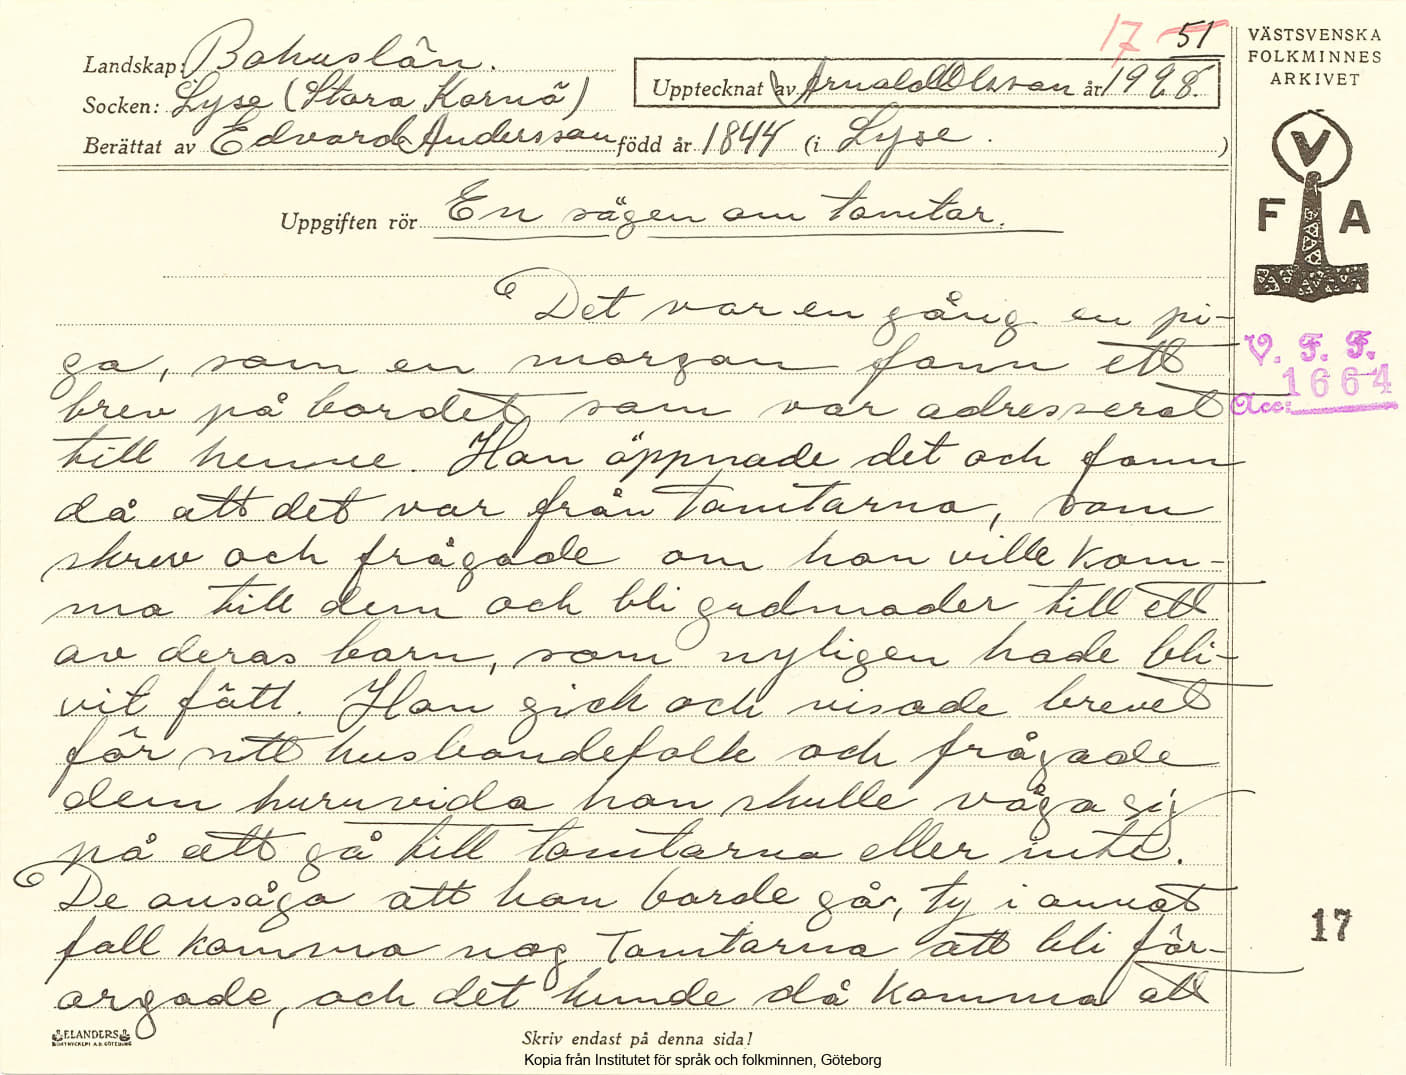 17 51
Landskap: Bohuslän.
Upptecknat av Arnold Olsson år 1928.
Socken: Lyse (Stora Kornö)
Berättat av Edvard Andersson född år 1844 (i Lyse. )
Uppgiften rör En sägen om tomtar.
Det var en gång en pi-
ga, som en morgon fann ett
brev på bordet som var adresserat
till henne. Hon öppnade det och fann
då att det var från tomtarna, som
skrev och frågade om hon ville kom-
ma till dem och bli gudmoder till ett
av deras barn, som nyligen hade bli-
vit fött. Hon gick och visade brevet
för sitt husbondefolk och frågade
dem huruvida hon skulle våga sig
på att gå till tomtarna eller inte.
De ansågo att hon borde gå, ty i annat
fall komma nog tomtarna att bli för-
argade, och det kunde då komma att
Skriv endast på denna sida!
Kopia från Institutet för språk och folkminnen, Göteborg
ELANDERS
BOKTRYCKERI A.B. GÖTEBORG
VÄSTSVENSKA
FOLKMINNES
ARKIVET
V
F A
V. F. F.
Acc: 1664
17